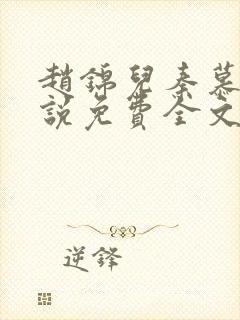 趙錦兒秦慕
說免費全文
逆鋒